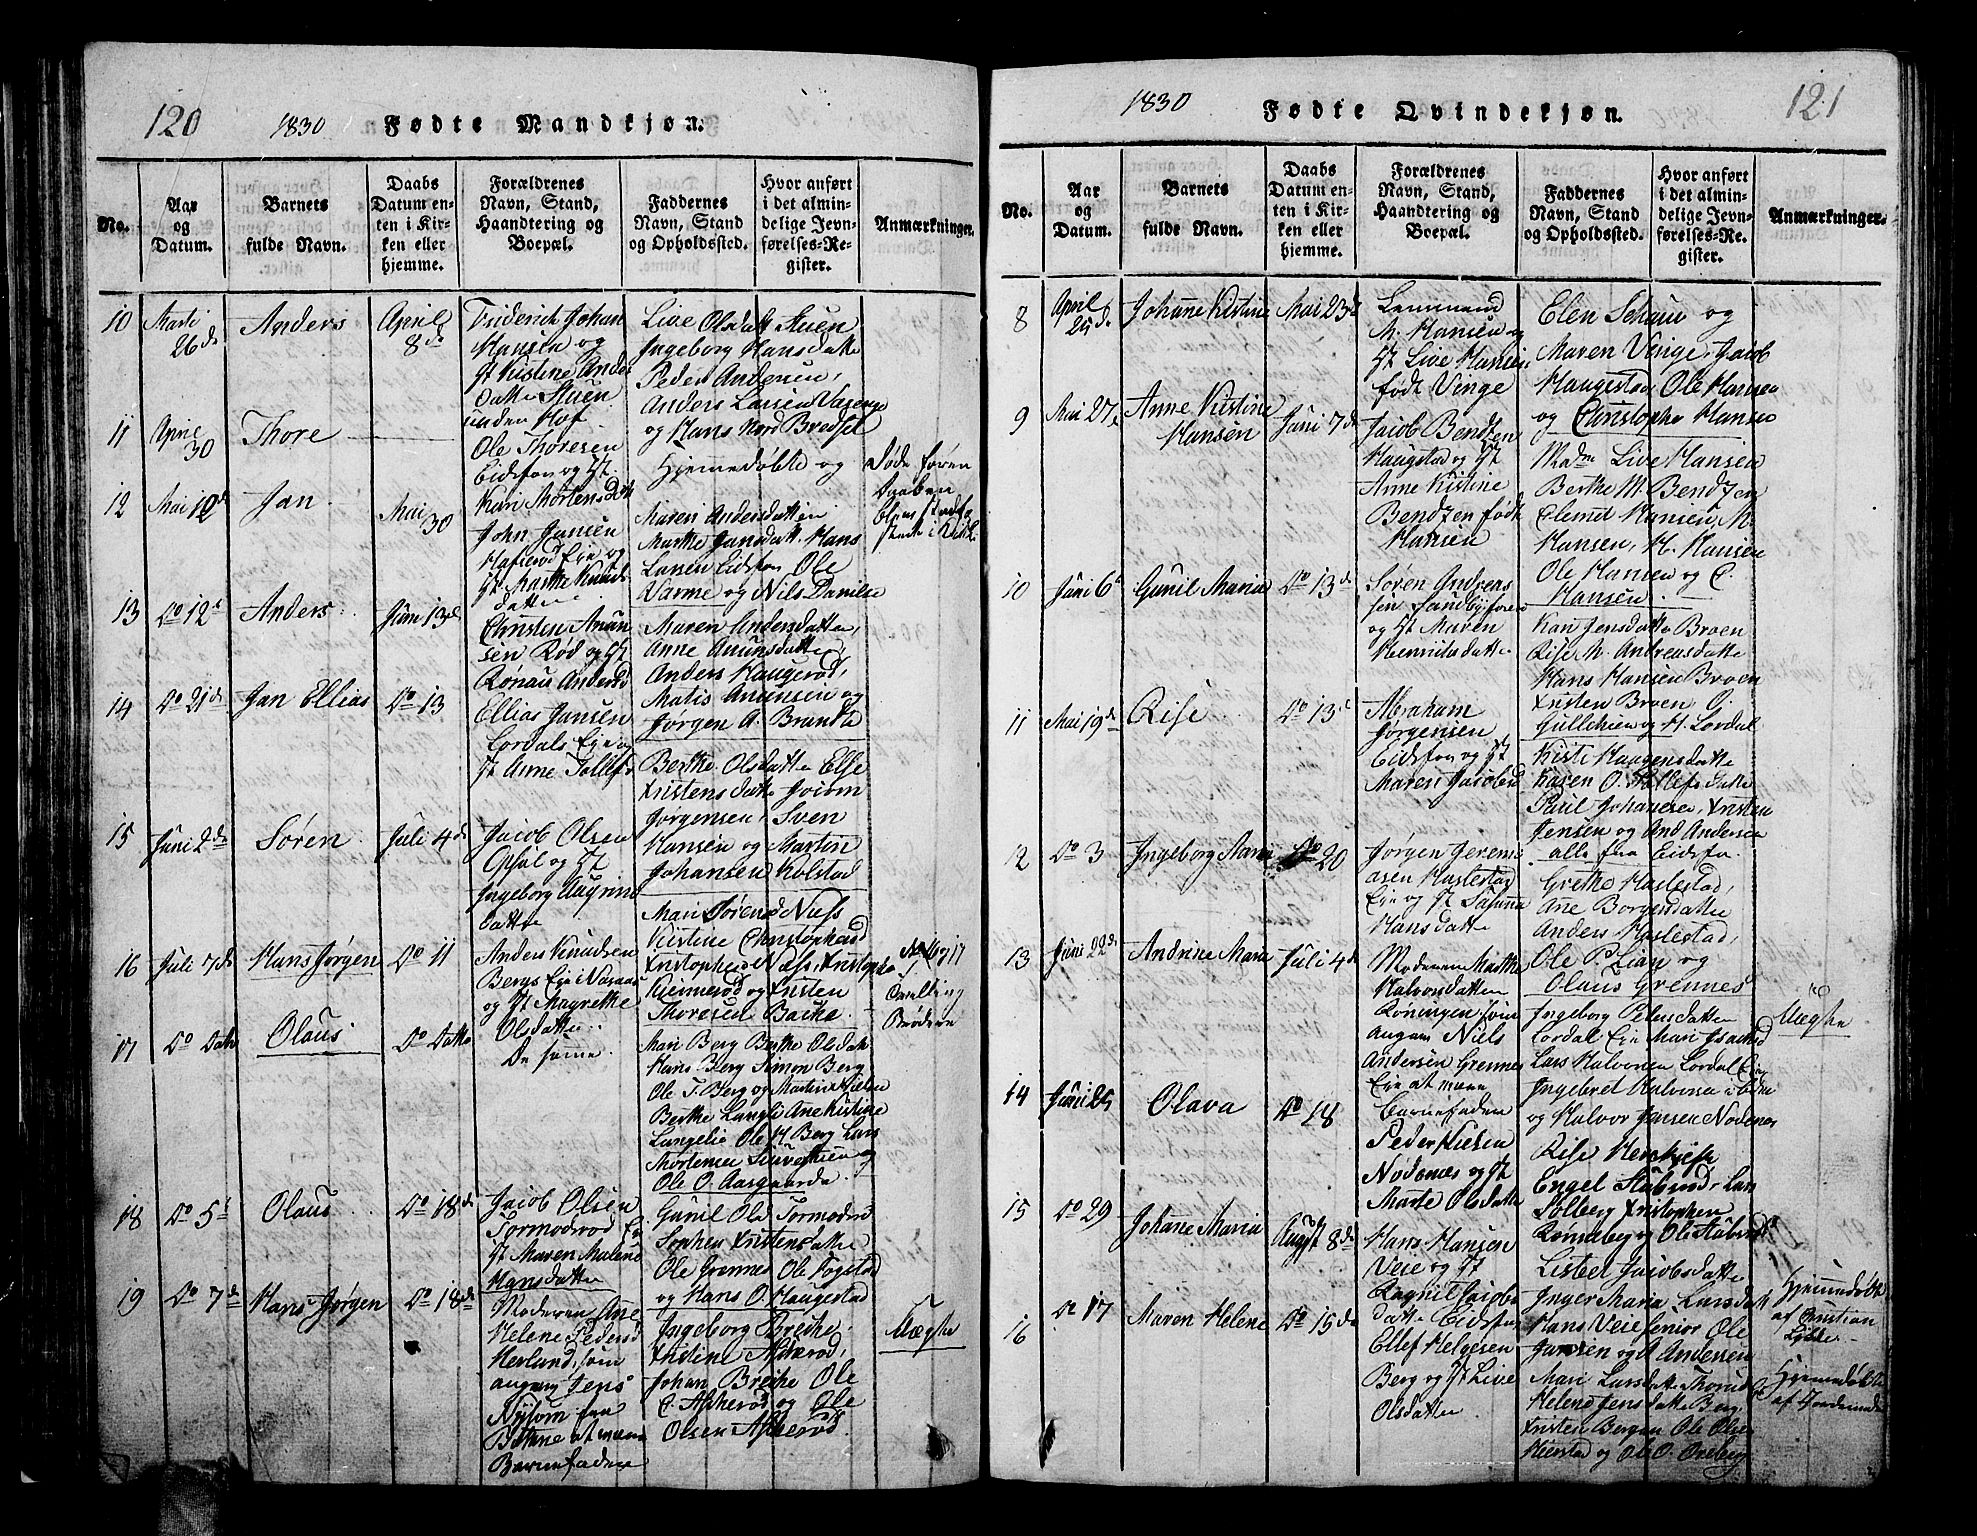 120
1830
Fødte Mandkjøn.
No.
Aar og Datum.
Barnets fulde Navn.
Daabs Datum enten i Kirken eller hjemme.
Forældrenes Navn, Stand, Haandtering og Boepæl.
Faddernes Navn, Stand og Opholdssted.
Hvor anført i det almindelige Jevnførelses-Register.
Anmærkninger.
10
Marti 26de
Anders
April 8de
Friderich Johan
Hansen og
Kistine Anders
Datte Stuen
unden Hof
Live Olsdatt Stuen
Ingeborg Hansdatte
Peder Andersen,
Anders Larsen
og Hans
11
April 30
Thore
Ole Thoresen
Eidsfos og
Kari Mortensdatt
Hjemmedøbte og
Døde foren
Daaben
12
Mai 12
Jan
Mai 30
John Jansen
Eje og
Marthe Knuds
datte
Maren Andersdatten
Marthe Jansdatt. Hans
Larsen Eidsfos Ole
Varme og Nils Danilse
13
Do 12te
Anders
Juni 13de
Christen Anun
sen Rød og
Rønau Andersd
Maren Andersdatten,
Anne Anunsdatte,
Anders Haugerød,
Matis Anunsen og
Jørgen A. Brandt
14
Do 21de
Jan Ellias
Do 13
Ellias Jansen
Lordals Eje og
Anne Tollefs
Berthe Olsdatte Else
Kristensdatte
Jørgensen, Sven
Hansen og Martin
Johansen Kolstad
15
Juni 2de
Søren
Juli 4de
Jacob Olsen
Opsal og
Ingeborg
Datte
Mari Sørensd
Kistine Christophersd
16
Juli 7de
Hans Jørgen
Do 11
Anders Knudsen
Bergs Eje
og Magrethe
Olsdatte
og Kristen
Thoresen Backe
No 16 og 17
Tvilling
Brødrene
17
Do Dato
Olaus
Do Datto
De samme
Mari Berg Berthe Olsdatt
Hans Berg Simon Berg
Ole T. Berg og Martin Nielsen
Berthe Langli Ane Kistine
Langelie Ole H Berg Lars
Mortensen
Ole O. Aasgaarde
18
Do 5te
Olaus
Do 18de
Jacob Olsen
Tormodrød Eje
Maren Malene
Hansdatte
Gunil Olsd Tormodrød
Kristensdatte
Ole Grennes Ole
og Hans O. Haugestad
19
Do 7de
Hans Jørgen
Do 18de
Moderen Ane
Helene Pedersd
som
angav Jens
fra
at være
Barnefaderen
Ingeborg Breche
Kistine Askerød,
Johan Breche Ole
C. Askerød og Ole
Olsen Askerød
Uægte
1830
Fødte Qvindekjøn.
121
No.
Aar og Datum.
Barnets fulde Navn.
Daabs Datum enten i Kirken eller hjemme.
Forældrenes Navn, Stand, Haandtering og Boepæl.
Faddernes Navn, Stand og Opholdssted.
Hvor anført i det almindelige Jevnførelses-Register.
Anmærkninger.
8
April 25de
Johanne Kistine
Mai 23de
Lensmand
M. Hansen og
Live Hansen
født Venge
Elen Schau og
Maren Venge, Jacob
Haugestad Ole Hansen
og Christophe Hansen
9
Mai 27
Anne Kistine
Hansen
Juni 7de
Jacob Bendzen
Haugstad og
Anne Kistine
Bendzen født
Hansen
Live Hansen
Berthe M. Bendzen
Hansen, M.
Hansen, H. Hansen
Ole Hansen og C.
Hansen
10
Juni 6te
Gunil Maria
Do 13de
Søren Andreas
sen Sandbyforen
og Maren
Henrichsdatte
Kari Jensdatte Broen
Rise M. Andreasdatte
Hans Hansen Broen
Kristen Broen O.
Gullichsen og H. Lordal
11
Mai 19de
Rise
Do 13de
Abraham
Jørgensen
Eidsfos og
Maren Jacobsd
Kisti Haagensdatte
Karen O. Tollefsdatte
Paul Johansen, Kristen
Jensen og And Andersen
alle fra Eidsfos
12
Do 3
Ingeborg Maria
Do 20
Jørgen Jeremi
asen Haslestad
Eje og
Hansdatte
Grethe Haslestad,
Ane Borgersdatte
Anders Haslestad,
Ole P. Lian og
Olaus Grennes
13
Juni 22de
Andrine Maria
Juli 4de
Moderen Marthe
Halvorsdatten
Røningen som
angav Niels
Andersen Grennes
Eje at være
Barnefaderen
Ingeborg Pedersdatten
Lordal Eje Mari Isachsd
Lars Halvorsen Lordal Eje
Ingebret Halvorsen
og Halvor Jansen Nodenes
Uægte
14
Juni 25
Olava
Do 18
Peder Nielsen
Nødenæs og
Marte Olsdatte
Rise
Engel Stubsrød, Lars
Solberg Kristophen
Rønneberg og Ole Stubsrød
15
Do 29
Johane Maria
August 8de
Hans Hansen
Veie og
Ragnil Jacobs
datte Eidsfos
Lisbet Jacobsdatte
Inger Maria Larsdatt
Hans Veie senior Ole
Jansen og A Andersen
Hjemmedøbt
af Christian
16
Do 17
Maren Helene
Do 15de
Ellef Helgesen
Berg og Live
Olsdatte
Mari Larsdatte
Helene Jensdatte Berg
Kristen Bergan Ole Olsen
og Ole O.
Hjemmedøbt
af Jordemoder